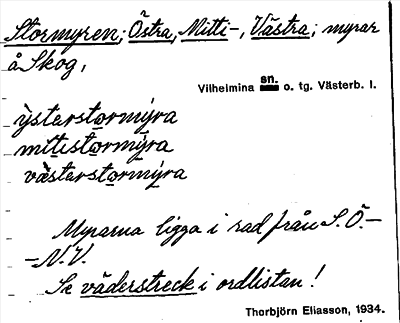 Stormyren; Östra, Mitti-, Västra; myrar
å Skog,
Vilhelmina sn. o. tg. Västerb. l.
ỳsterstormýra
mìtistormýra
vàsterstormýra
Myrarna ligga i rad från S.Ö.-
-N.V.
Se väderstreck i ordlistan!
Thorbjörn Eliasson, 1934.